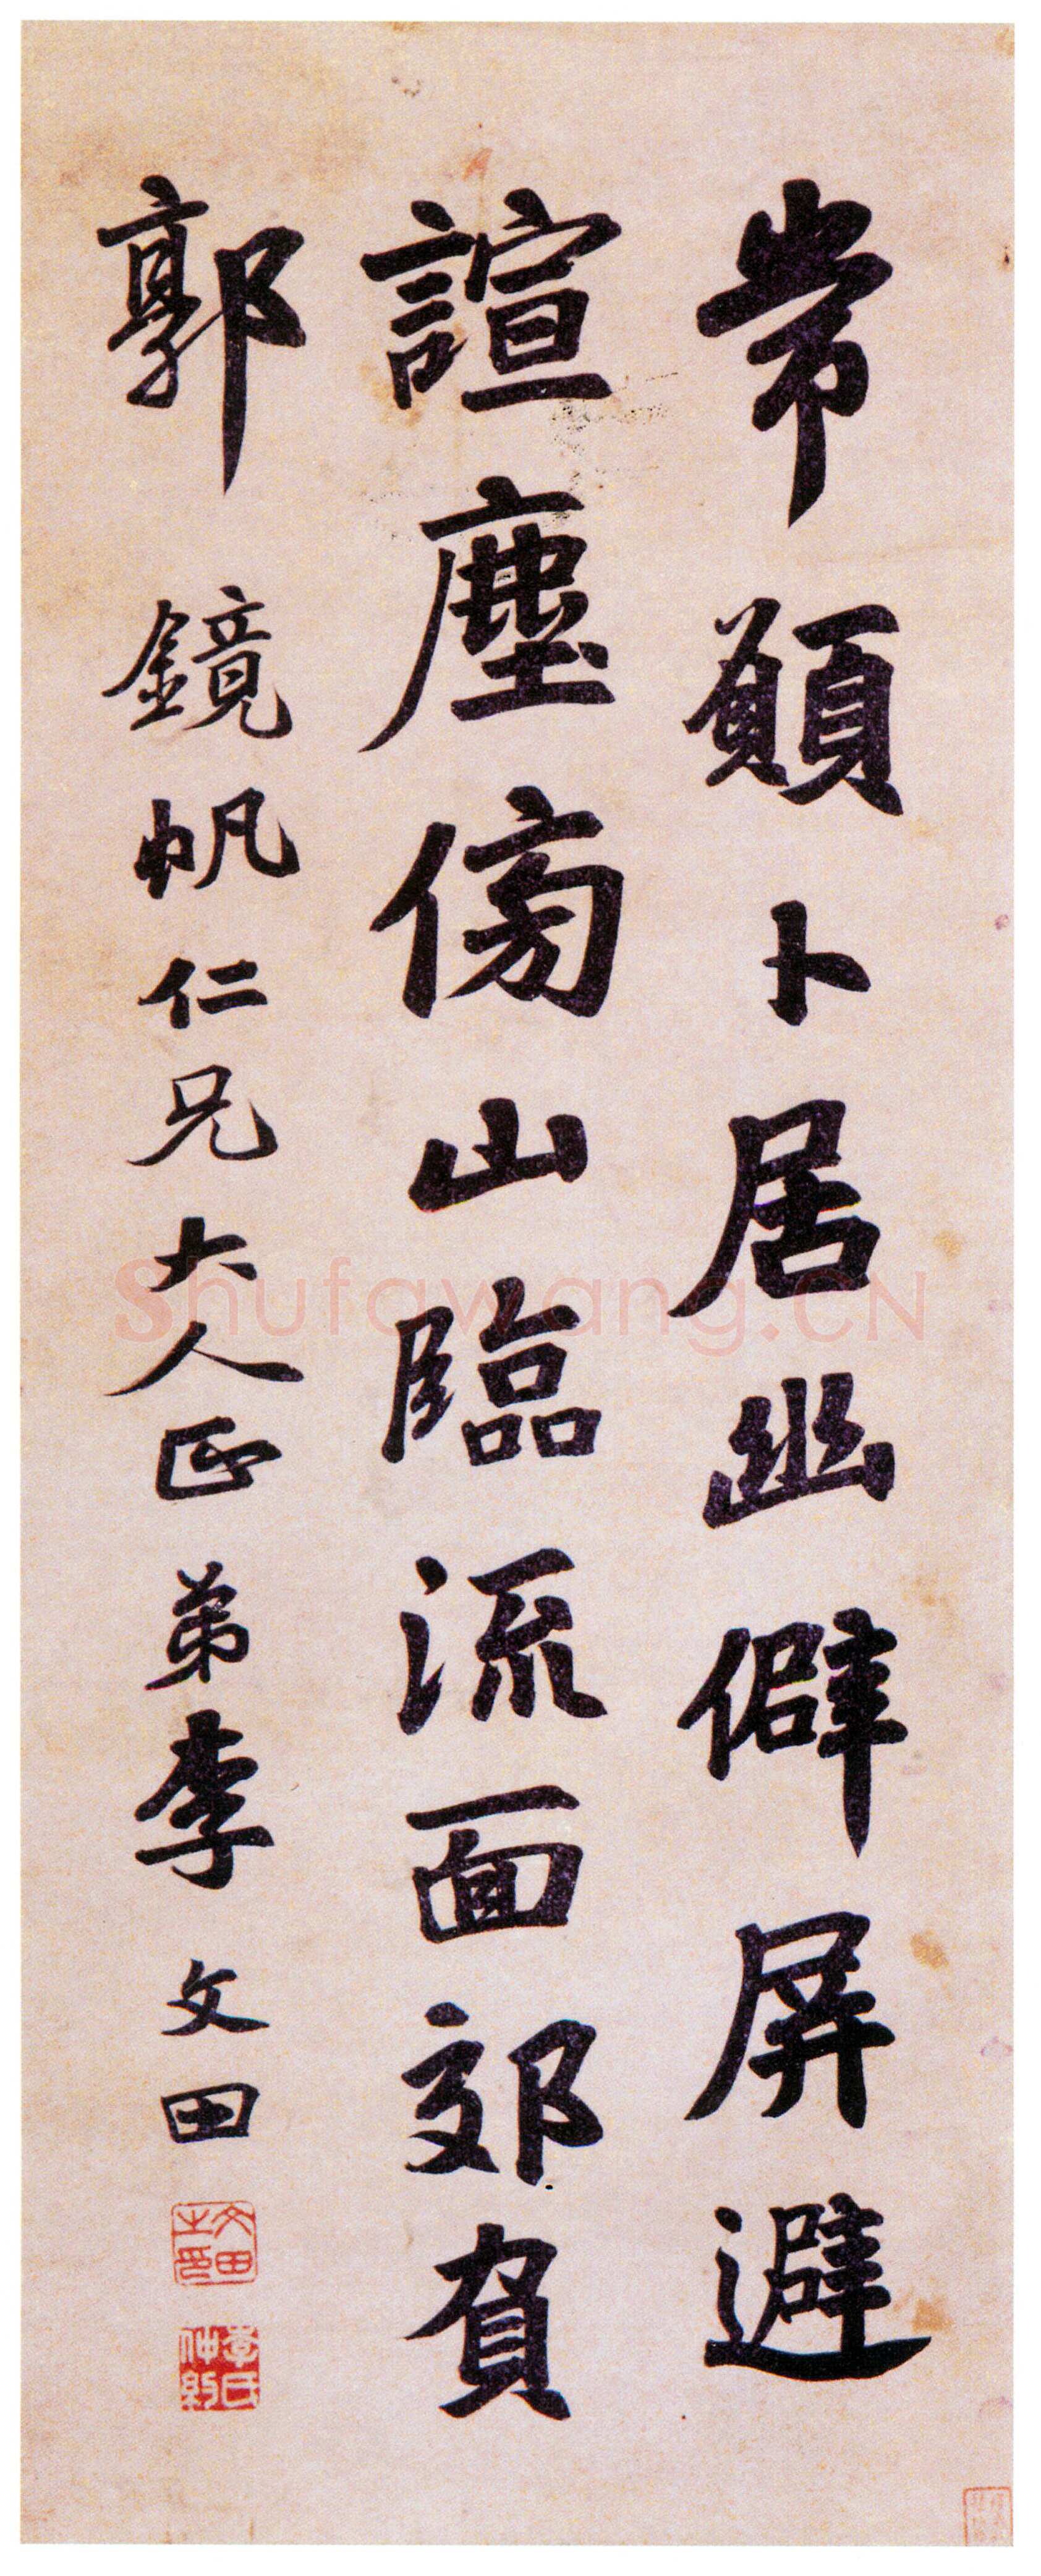 常願卜居幽僻屏避
諠塵傍山臨流面郊負
郭 鏡帆仁兄大人正 弟李文田
文田之印
李氏仲約
Shufawang.CN